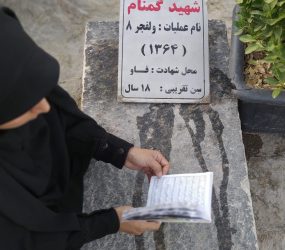 شهید گمنام
نام عملیات : والفجر ۸
(۱۳۶۴)
محل شهادت : فاو
سن تقریبی : ۱۸ سال